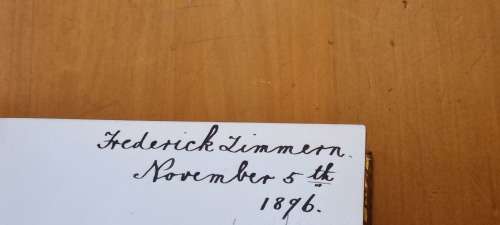 Frederick Zimmern.
November 5th
1896.